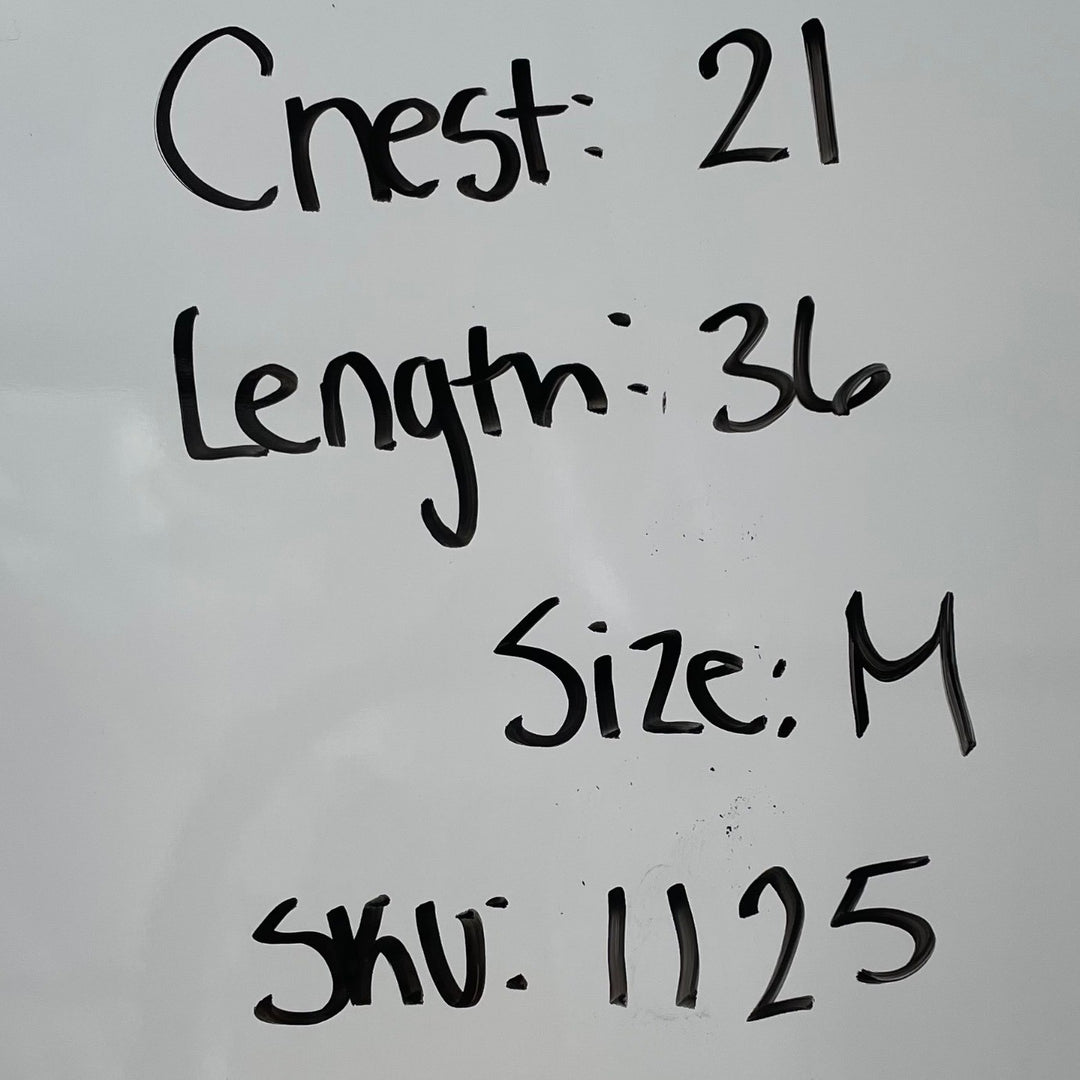 Chest: 21
Length: 36
Size: M
SKU: 1125